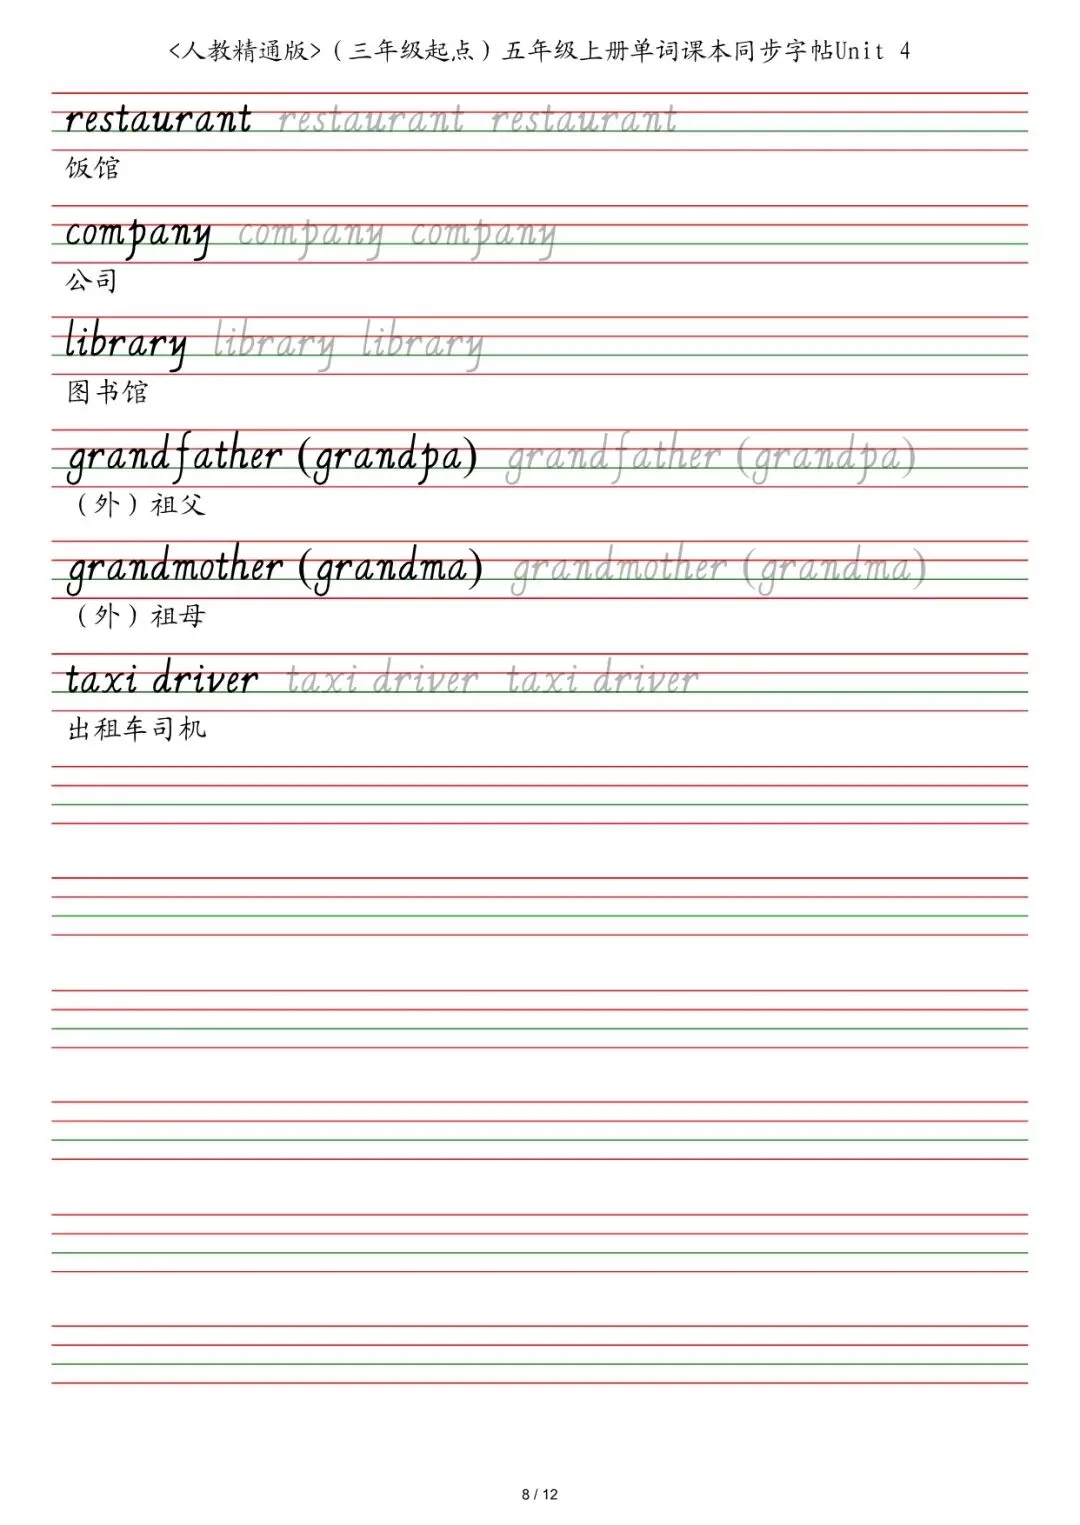 <人教精通版>（三年级起点）五年级上册单词课本同步字帖Unit 4
restaurant restaurant restaurant
饭馆
company company company
公司
library library library
图书馆
grandfather (grandpa) grandfather (grandpa)
（外）祖父
grandmother (grandma) grandmother (grandma)
（外）祖母
taxi driver taxi driver taxi driver
出租车司机
8 / 12